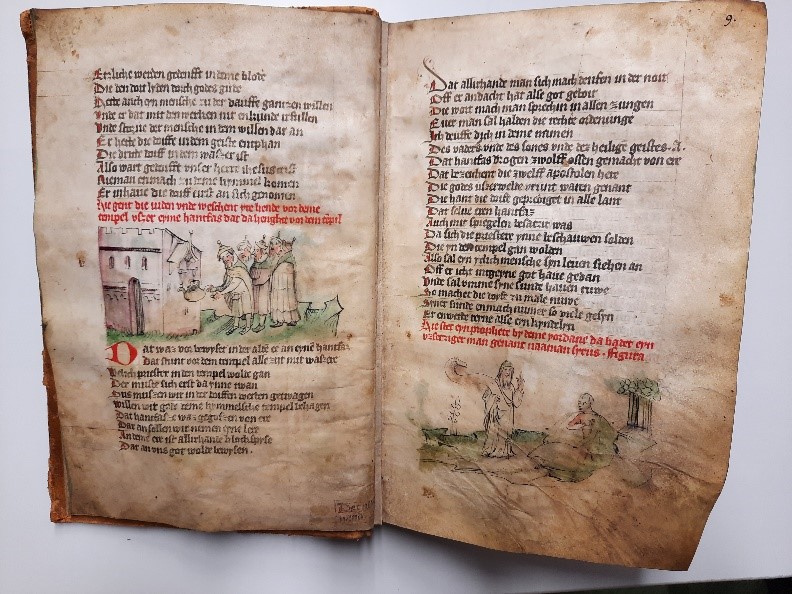 Etzliche werden gedeufft in deme blode
Die den doit lyden doich godes gude
Hette auch eyn mensche zu der dauffe gantzen willen
Vnde er dat mit den wercken nit enkunde irfullen
Vnde der mensche in dem willen dar an
Er hette die douffe in dem geiste entphan
Die dritte douff in dem wasser ist
Also wart gedeufft vnser herre ihesus crist
Nieman enmach zu deme hymmel komen
Er inhaue die douff an sich genomen
Hie gent die iuden vnde weschent yre hende vor deme
tempel vsser eyme hantfas dat da henghet vor dem tēpil
Dat waz vor bewyset in der aldē ee an eynē hantfas
Dat stunt vor dem tempel alle zit mit wasser
Welich priester in den tempel wolde gan
Der muste sich erst da ynne twan
Sus mussen wir in der douffen werden getwagen
willen wir gode deme hymmelsche tempel behagen
Dat hantfasse waz gegossen von ere
Dar an sollen wir nemen eyne lere
An deme ere ist allirhande
Dar an vns got wolde bewysen .
9.
Dat allirhande man sich mach deufen in der noit
Off er andacht hat alse got geboit
Die wort mach man sprechin in allen zungen
Eiuer man sal halden die rechte ordenunge
Ich deuffe dich in deme namen
Des vaders vnde des sones vnde des heilige geistes . A .
Dat hantfas drogen zwolff ossen gemacht von ere
Dat bezeichent die zwelff apostolen here
Die godes vsserwelte vrunt waren genant
Die hant die doufe geprediget in alle lant
Dat selue eren hantfaz
Auch mit spiegelen besatzt was
Da sich die priestere ynne beschauwen solden
Die yn den tempel gan wolden
Also sal eyn ydich mensche syn leuen siehen an
Off er icht ingeyne got haue gedan
Vnde sal vmme syne sunde hauen ruwe
So machet die doyfe zu male nuwe
Syner sunde enmach nummer so viele gesyn
Er enwerde reyne alse eyn kyndelyn
Hie stet eyn prophete by deme yordane da badet eyn
vssetziger man genant naaman syrus . figura